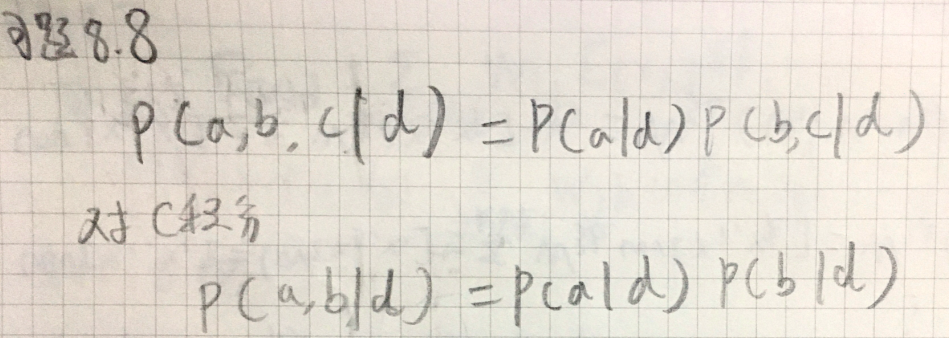 习题 8.8
p(a,b,c|d) = p(a|d) p(b,c|d)
对 c 积分
p(a,b|d) = p(a|d) p(b|d)